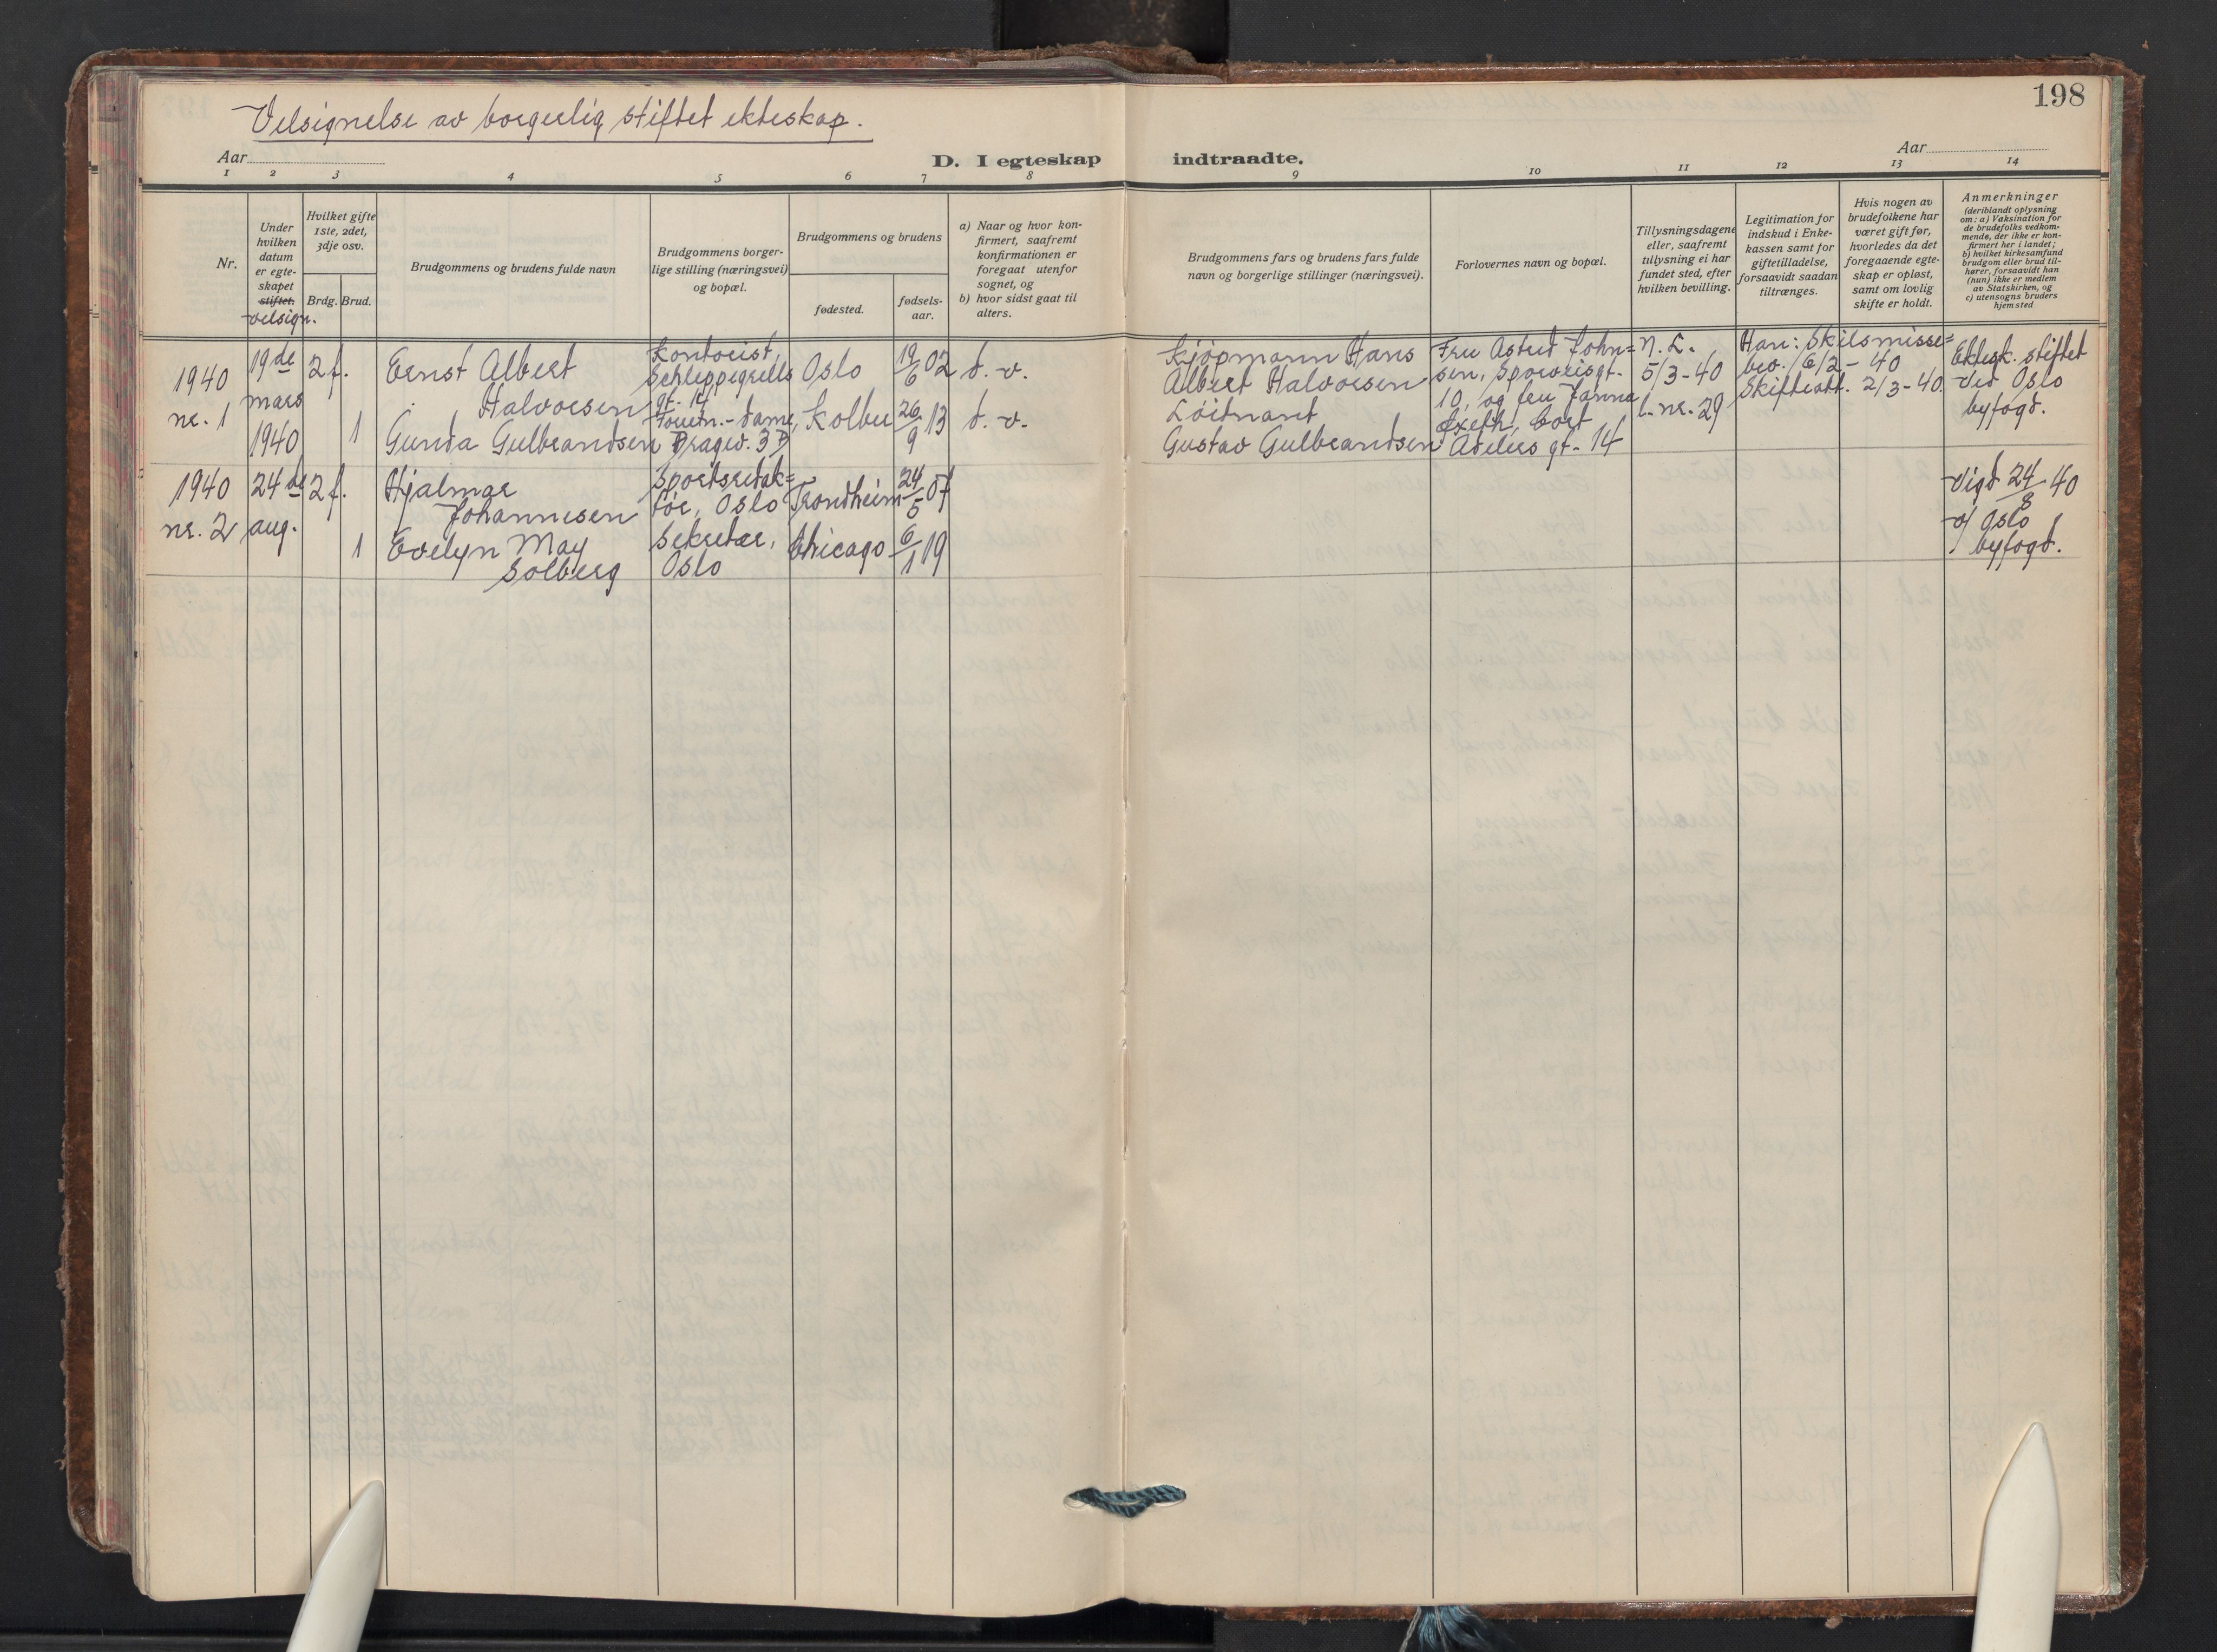 198
Velsignelse av borgerlig stiftet ekteskap.
Aar
D. I egteskap indtraadte.
Aar
1 2 3 4 5 6 7 8 9 10 11 12 13 14
Nr.
Under
hvilken
datum
er egte-
skapet
stiftet.
velsign.
Hvilket gifte
1ste, 2det,
3dje osv.
Brdg. Brud.
Brudgommens og brudens fulde navn
Brudgommens borger-
lige stilling (næringsvei)
og bopæl.
Brudgommens og brudens
fødested.
fødsels-
aar.
a) Naar og hvor kon-
firmert, saafremt
konfirmationen er
foregaat utenfor
sognet, og
b) hvor sidst gaat til
alters.
Brudgommens fars og brudens fars fulde
navn og borgerlige stillinger (næringsvei).
Forlovernes navn og bopæl.
Tillysningsdagene
eller, saafremt
tillysning ei har
fundet sted, efter
hvilken bevilling.
Legitimation for
indskud i Enke-
kassen samt for
giftetilladelse,
forsaavidt saadan
tiltrænges.
Hvis nogen av
brudefolkene har
været gift før,
hvorledes da det
foregaaende egte-
skap er opløst,
samt om lovlig
skifte er holdt.
Anmerkninger
(deriblandt oplysning
om: a) Vaksination for
de brudefolks vedkom-
mende, der ikke er kon-
firmert her i landet;
b) hvilket kirkesamfund
brudgom eller brud til-
hører, forsaavidt han
(hun) ikke er medlem
av Statskirken, og
c) utensogns bruders
hjemsted
1940
nr. 1
19de
mars
1940
2 f.
1
Ernst Albert
Halvorsen
Gunda Gulbrandsen
Kontorist,
Schleppegrells
gt.
-dame,
Oslo
Kolbu
19/6 02
26/9 13
d. v.
d. v.
Kjøpmann Hans
Albert Halvorsen
Løitnant
Gustav Gulbrandsen
Fru Astrid John=
sen,
10, og fru Janna
Cort
Adelers gt. 14
N. L.
5/3-40
l. nr. 29
Han: Skilsmisse=
bev. 6/2-40
Skifteatt. 2/3-40
Ektesk. stiftet
ved Oslo
byfogd.
1940
nr. 2
24de
aug.
2 f.
1
Hjalmar
Johannesen
Evelyn May
Solberg
Sportsredak=
tør, Oslo
Sekretær,
Oslo
Trondheim
Chicago
24/5 07
6/1 19
Vigd 24/8 40
v/ Oslo
byfogd.